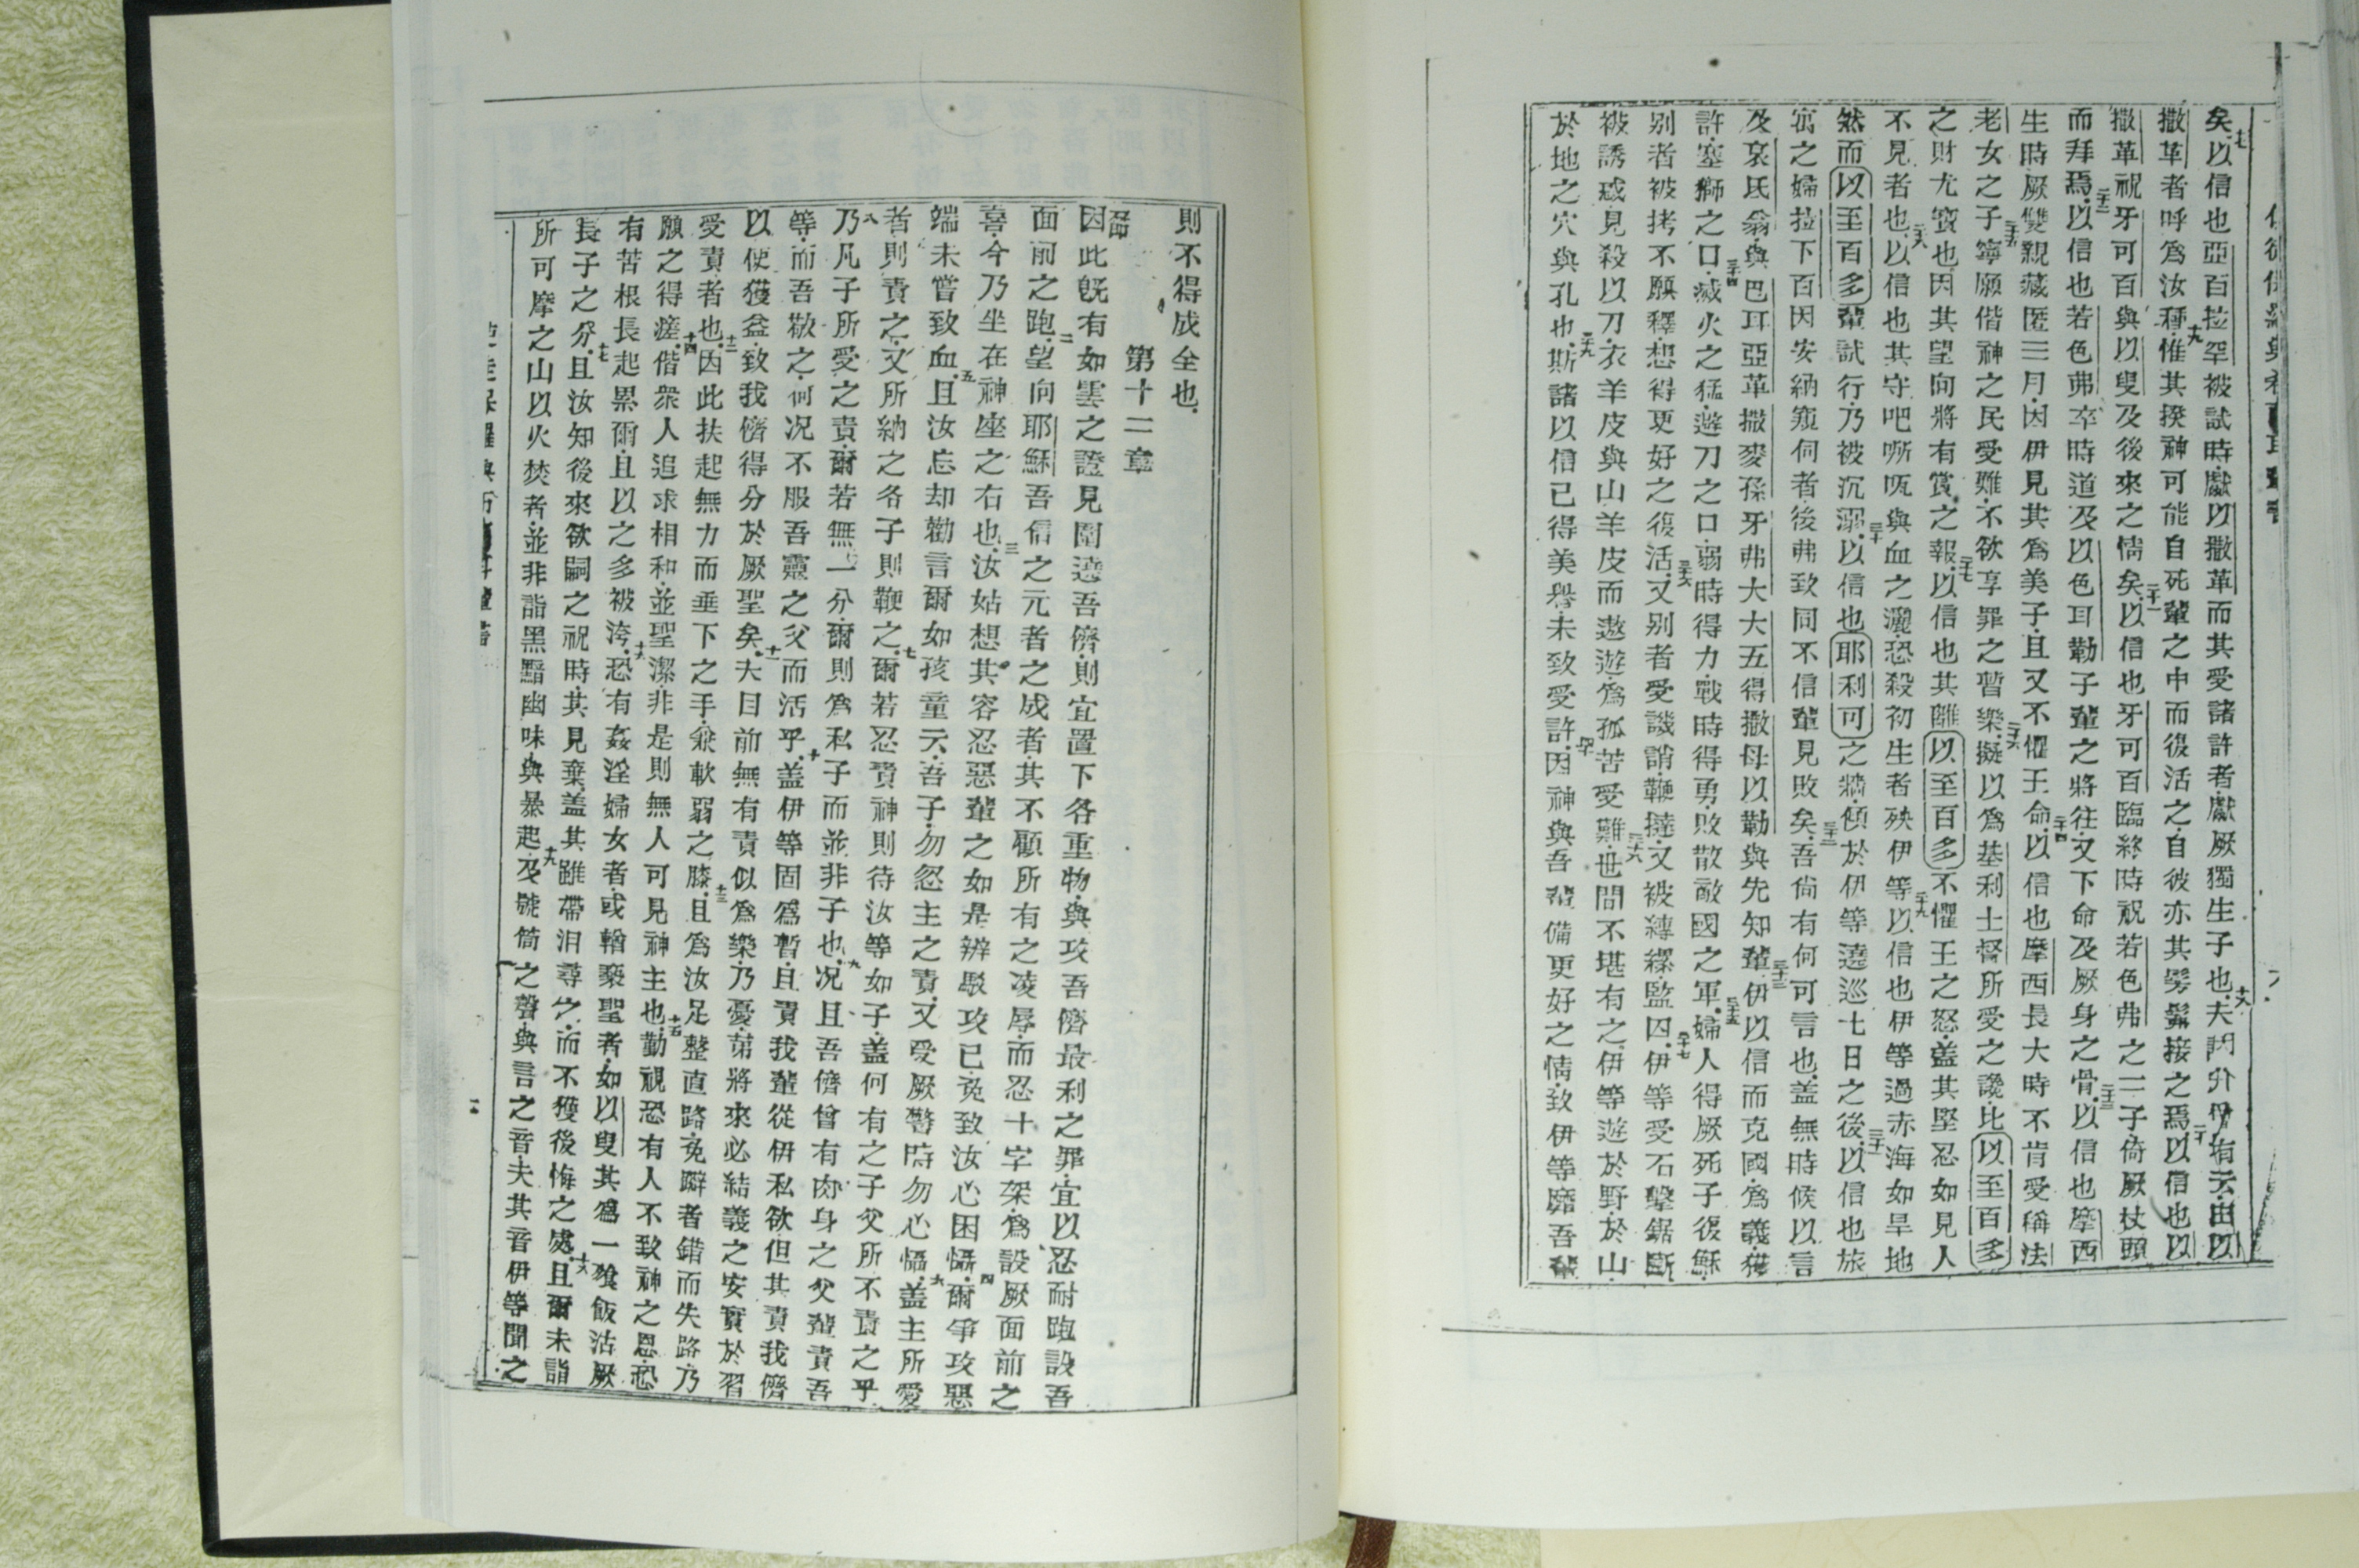 矣十七以信也亞百拉罕被試時獻以撒革而其受諸許者獻厥獨生子也十八夫有云由以
撒革者呼為汝種十九惟其揆神可能自死輩之中而復活之自彼亦其髣髴接之焉二十以信也以
撒革祝牙可百與以叟及後來之情矣二十一以信也牙可百臨終時祝若色弗之二子倚厥杖頭
而拜焉二十二以信也若色弗卒時道及以色耳勒子輩之將往又下命及厥身之骨二十三以信也摩西
生時厥雙親藏匿三月因伊見其為美子且又不懼王命二十四以信也摩西長大時不肯受稱法
老女之子二十五寧願偕神之民受難不欲享罪之暫樂二十六擬以為基利士督所受之讒比以至百多
之財尤寶也因其望向將有賞之報二十七以信也其離以至百多不懼王之怒蓋其堅忍如見人
不見者也二十八以信也其守吧嘶㕶與血之灑恐殺初生者殃伊等二十九以信也伊等過赤海如旱地
然而以至百多輩試行乃被沉溺三十以信也耶利可之墻傾於伊等遶巡七日之後三十一以信也旅
寓之婦拉下百因安納窺伺者後弗致同不信輩見敗矣三十二吾尚有何可言也蓋無時候以言
及哀氐翁與巴耳亞革撒麥孫牙弗大大五得撒母以勒與先知輩三十三伊以信而克國為義獲
許塞獅之口三十四滅火之猛遊刀之口弱時得力戰時得勇敗散敵國之軍三十五婦人得厥死子復穌
别者被拷不願釋想得更好之復活三十六又别者受譏誚鞭撻又被縛縲監囚三十七伊等受石擊鋸斷
被誘惑見殺以刀衣羊皮與山羊皮而遨遊為孤苦受難三十八世間不堪有之伊等遊於野於山
於地之穴與孔也三十九斯諸以信已得美譽未致受許四十因神與吾輩備更好之情致伊等靡吾輩
則不得成全也
第十二章
因此旣有如雲之證見圍遶吾儕則宜置下各重物與攻吾儕最利之罪宜以忍耐跑設吾
面前之跑二望向耶穌吾信之元者之成者其不顧所有之凌辱而忍十字架為設厥面前之
喜今乃坐在神座之右也三汝姑想其容忍惡輩之如是辨駁攻己免致汝心困懾四爾爭攻惡
端未嘗致血五且汝忘却勸言爾如孩童云吾子勿忽主之責又受厥警時勿心懾六蓋主所愛
者則責之又所納之各子則鞭之七爾若忍責神則待汝等如子蓋何有之子父所不責之乎
八乃凡子所受之責爾若無一分爾則為私子而並非子也九况且吾儕曾有肉身之父輩責吾
等而吾敬之何况不服吾靈之父而活乎十蓋伊等固為暫且責我輩從伊私欲但其責我儕
以使獲益致我儕得分於厥聖矣十一夫目前無有責似為樂乃憂第將來必結義之安實於習
受責者也十二因此扶起無力而垂下之手兼軟弱之膝十三且為汝足整直路免躃者錯而失路乃
願之得瘥十四偕衆人追求相和並聖潔非是則無人可見神主也十五勤視恐有人不致神之恩恐
有苦根長起累爾且以之多被洿十六恐有姦淫婦女者或輶褻聖者如以叟其為一飧飯沽厥
長子之分十七且汝知後來欲嗣之祝時其見棄蓋其雖帶泪尋之而不獲後悔之處十八且爾未詣
所可摩之山以火焚者並非詣黑黯幽味與暴起十九及號筒之聲與言之音夫其音伊等聞之